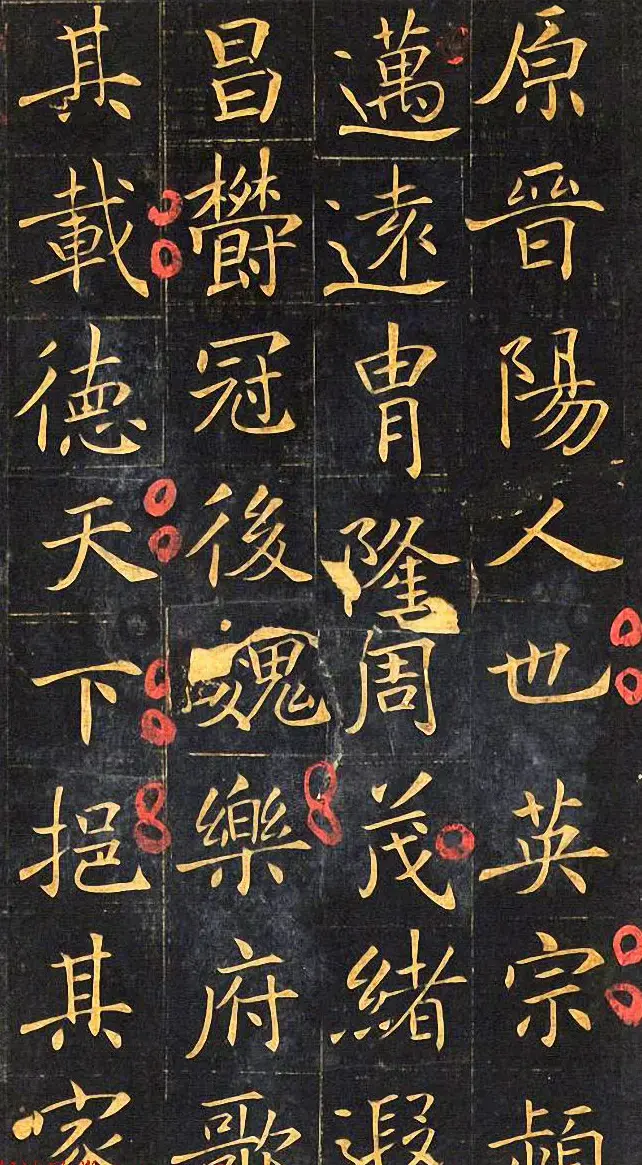 原晉陽人也英宗
邁遠胄隆周茂緒遐
昌欝冠後魏樂府歌
其載德天下挹其家